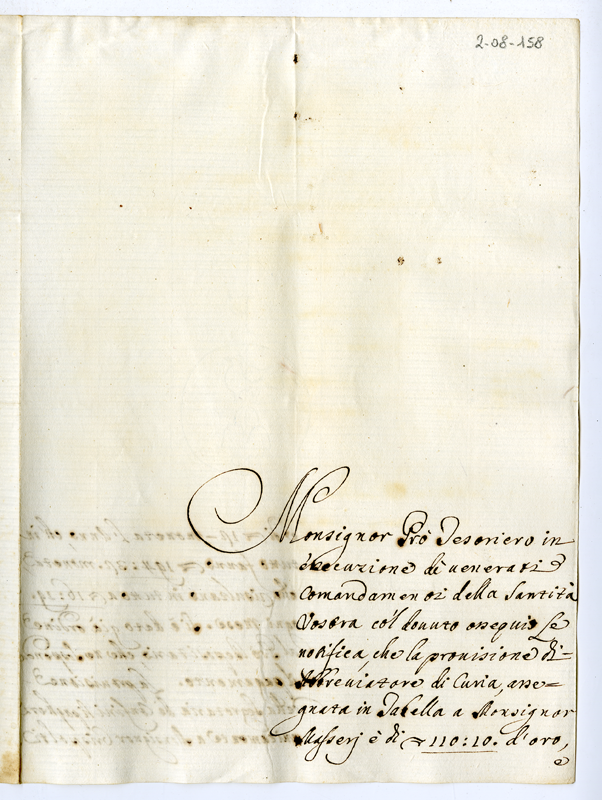 2-08-158
Monsignor Prò Tesoriero in
essecuzione di venerati
Comandamenti della Santità
Vostra col dovuto ossequio Le
notifica, che la provisione di
Abbreviatore di Curia, asse=
gnata in Tabella a Monsignor
Masserj è di 110:10. d'oro,
e